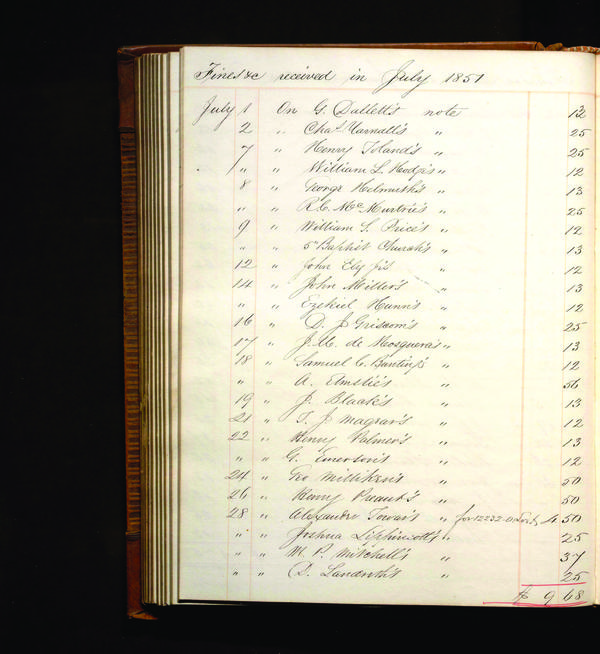 Fines &c received in July 1851
July 1 On G. Dallett's note 13
2 " Chas Yarnall's " 25
7 " Henry Toland's " 25
" " William L. Hodge's " 12
8 " George Helmuth's " 13
" " R.C. McMurtrie's " 25
9 " William S. Price's " 12
" " 5th Baptist Church's " 13
12 " John Ely Jr's " 12
14 " John Miller's " 13
" " Ezekiel Hunn's " 12
16 " D. J. Griscom's " 25
17 " J. M. de Mosquera's " 13
18 " Samuel C. Bunting's " 12
" " A. Emslie's " 56
19 " J. Black's " 13
21 " T. J. Magear's " 12
22 " Henry Palmer's " 13
" " G. Emerson's " 12
24 " Geo Milliken's " 50
26 " Henry " 50
28 " Alexander Towar's " for 12232 4 50
" " Joshua Lippincott's " 25
" " M. P. Mitchell's " 37
" " D. Landreth's " 25
$ 9 68